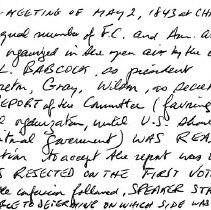 MEETING OF MAY 2, 1843 AT CH
equal number of F.C. and Am.
organized in the open air by the
L. BABCOCK, as president
Gray, Wilson, as
REPORT of the Committee (favoring
organization, until U.S. should
Government) WAS READ
to accept the report was
REJECTED ON THE FIRST VOTE
confusion followed, SPEAKER
TO DETERMINE ON WHICH SIDE WAS